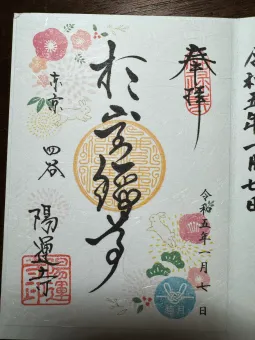 奉拝
於岩稲荷
令和五年一月七日
東京
四谷
陽運寺
令和五年一月七日